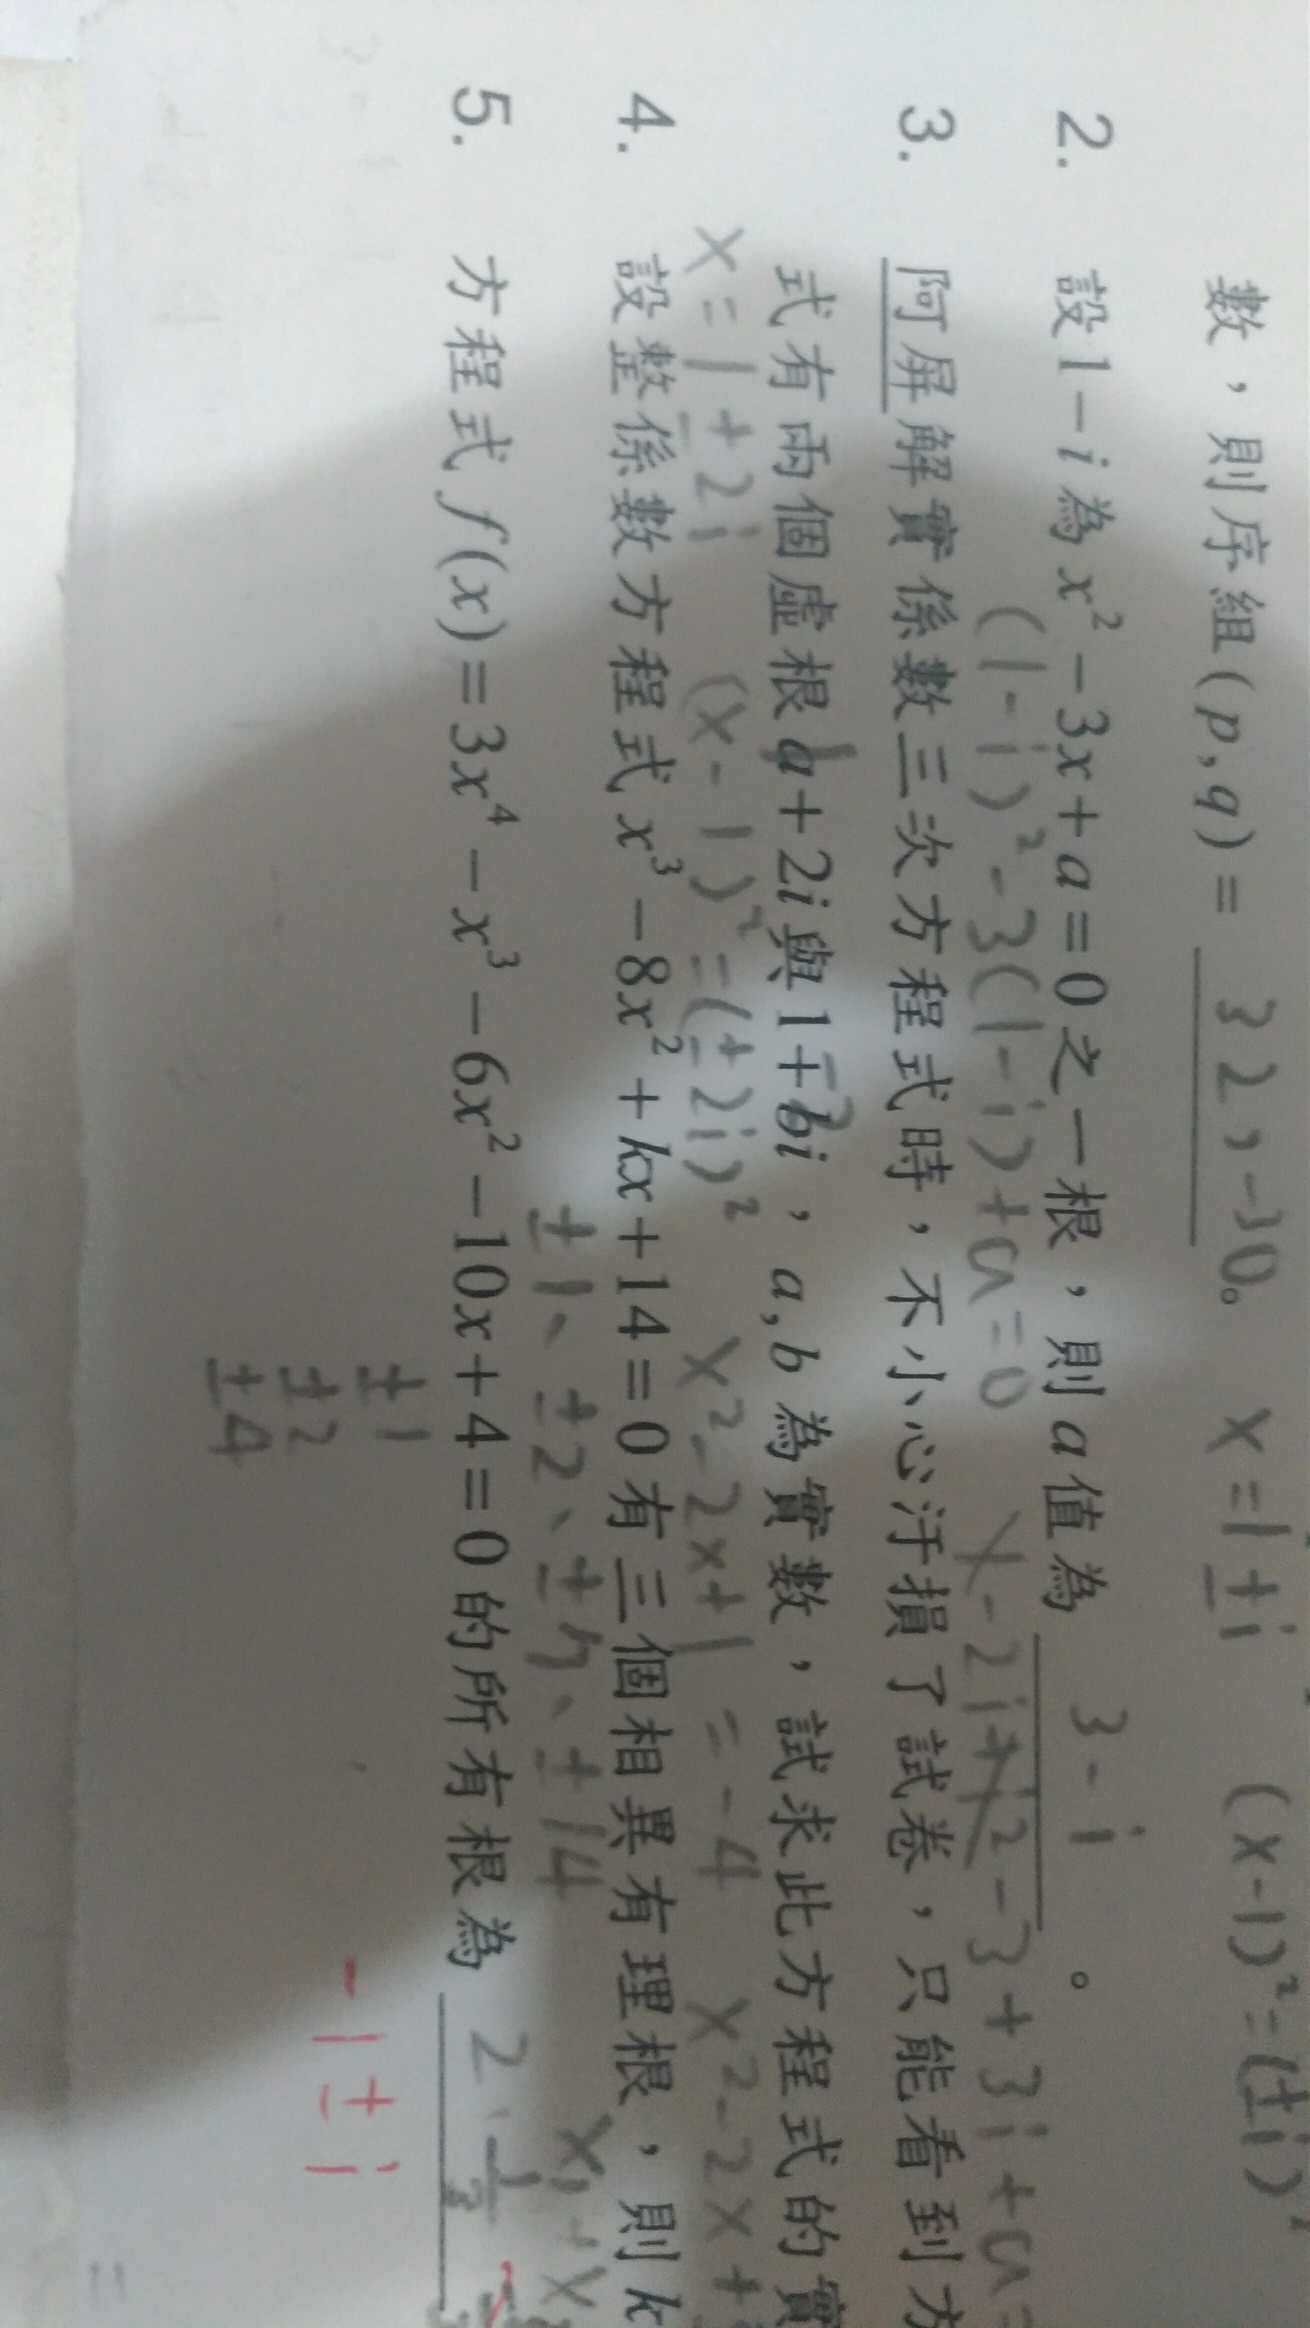 數，則序組(p,q)= 32,-30。 x=1±i (x-1)²=(±i)²
2. 設1-i為x²-3x+a=0之一根，則a值為 3-i 。
(1-i)²-3(1-i)+a=0 1-2i+i²-3+3i+a=
3. 阿屏解實係數三次方程式時，不小心汙損了試卷，只能看到方
式有兩個虛根a+2i與1+bi，a,b為實數，試求此方程式的實
1 -2
x=1±2i (x-1)²=(±2i)² x²-2x+1=-4 x²-2x+
4. 設整係數方程式x³-8x²+kx+14=0有三個相異有理根，則k
±1、±2、±7、±14
5. 方程式f(x)=3x⁴-x³-6x²-10x+4=0的所有根為 2、1/3
±1
±2
±4
-1±i